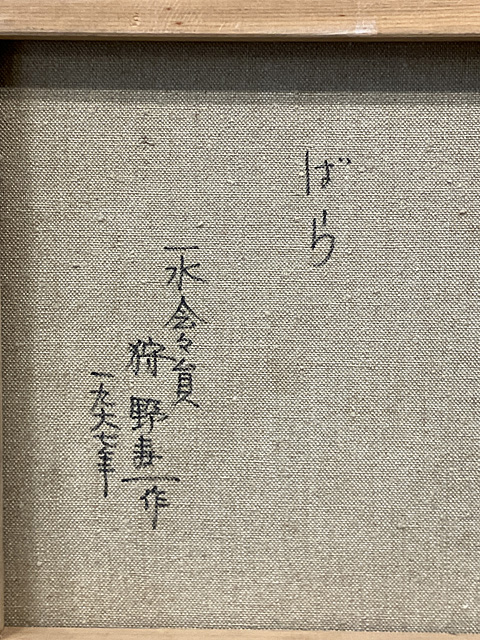 ばら
一水会々員
狩野寿一作
一九六七年